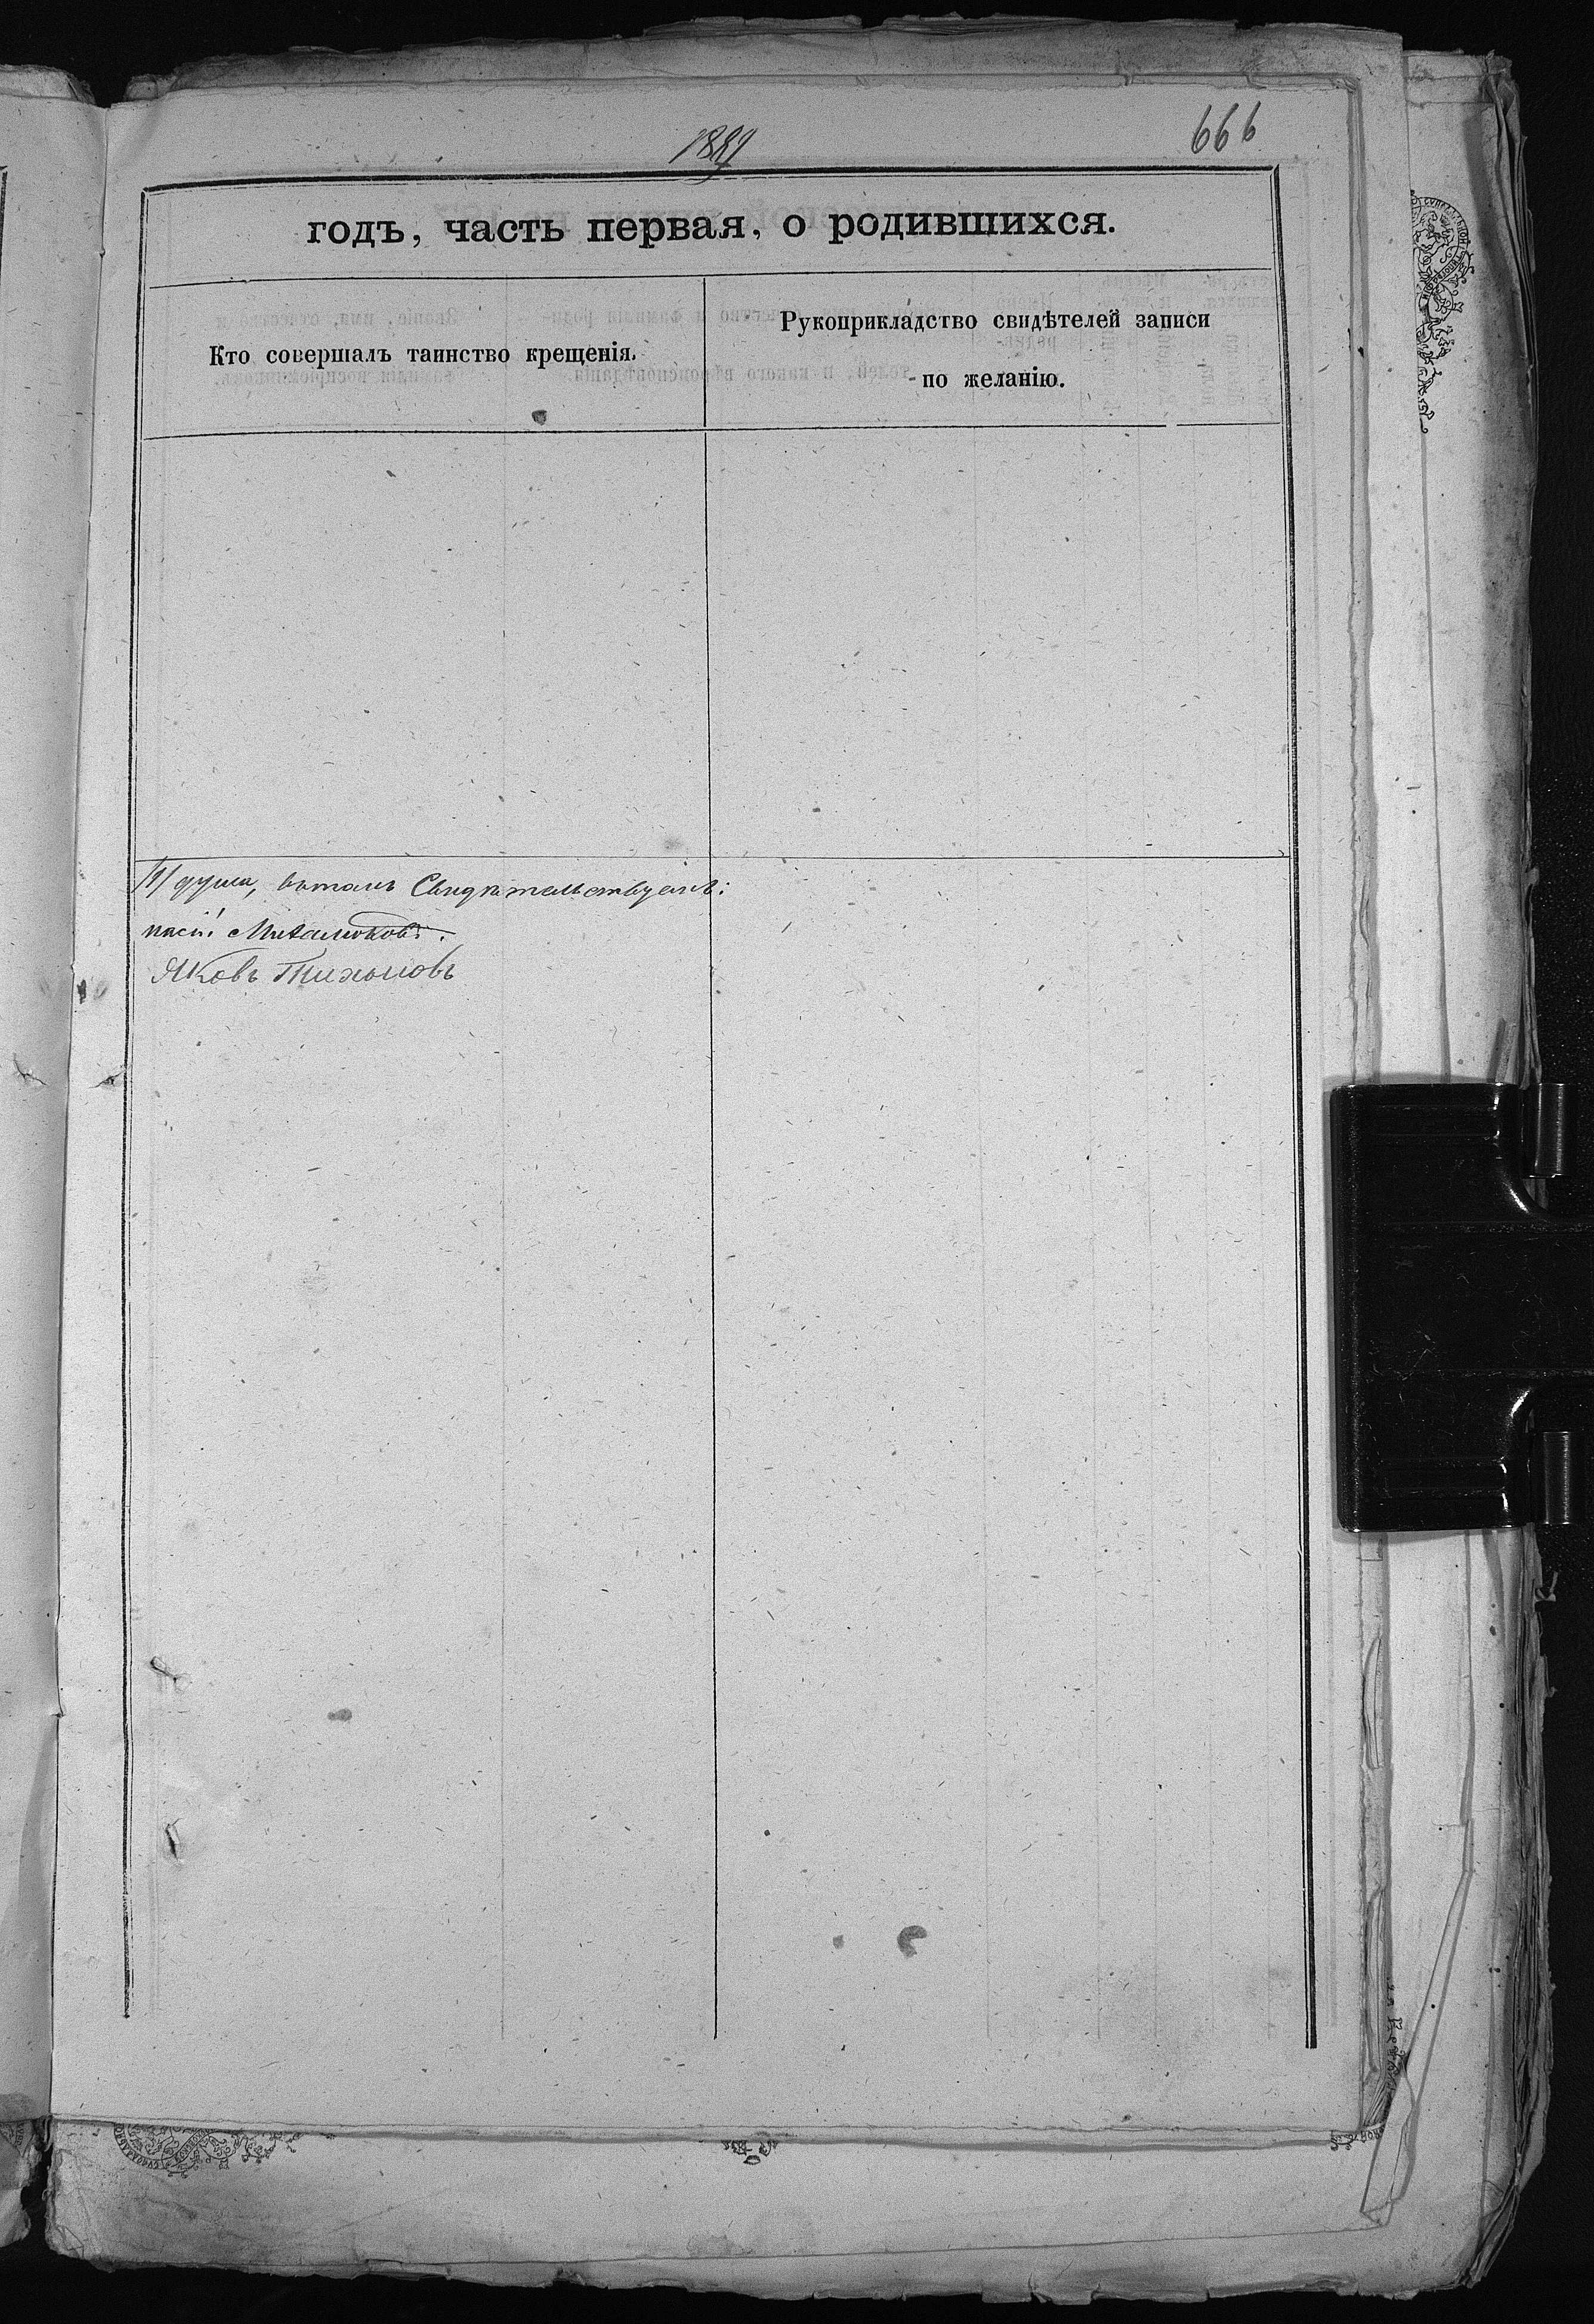 1889
666
годъ, часть первая, о родившихся.
Кто совершалъ таинство крещенія.
Рукоприкладство свидѣтелей записи
по желанію.
/1/ душа, вътомъ Свидѣтельствуемъ:
Яковъ Тихоновъ